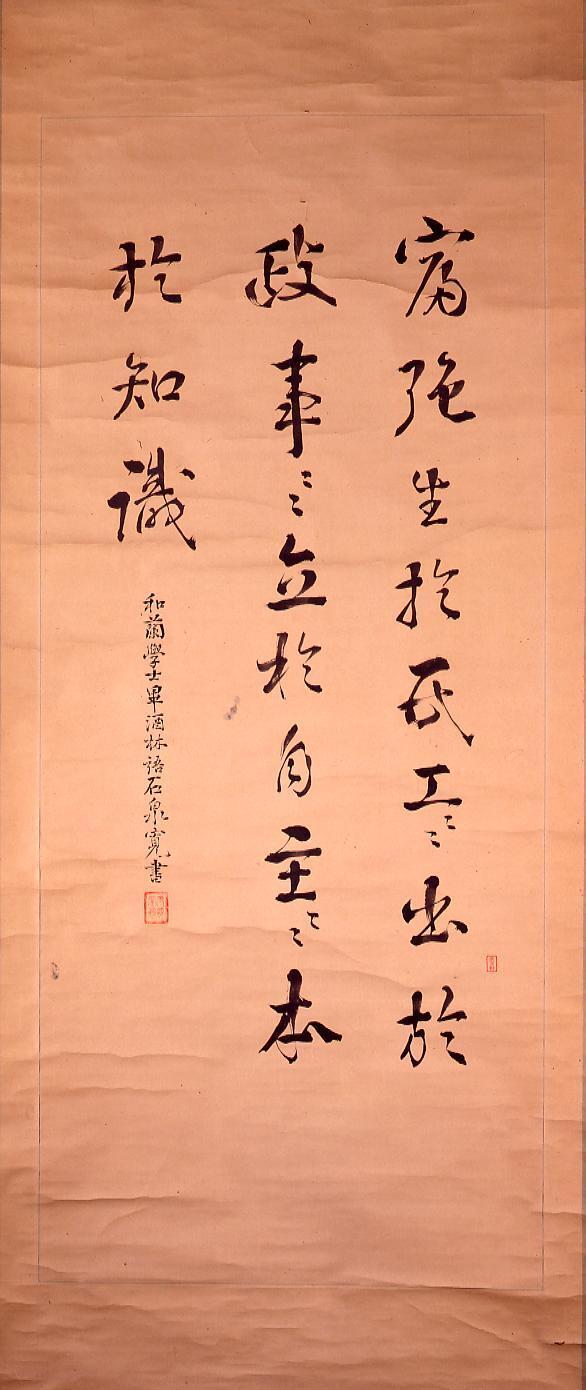 富強生於民工〻〻出於
政事〻〻立於自主〻〻本
於知識
和蘭學士畢酒林語石泉寬書